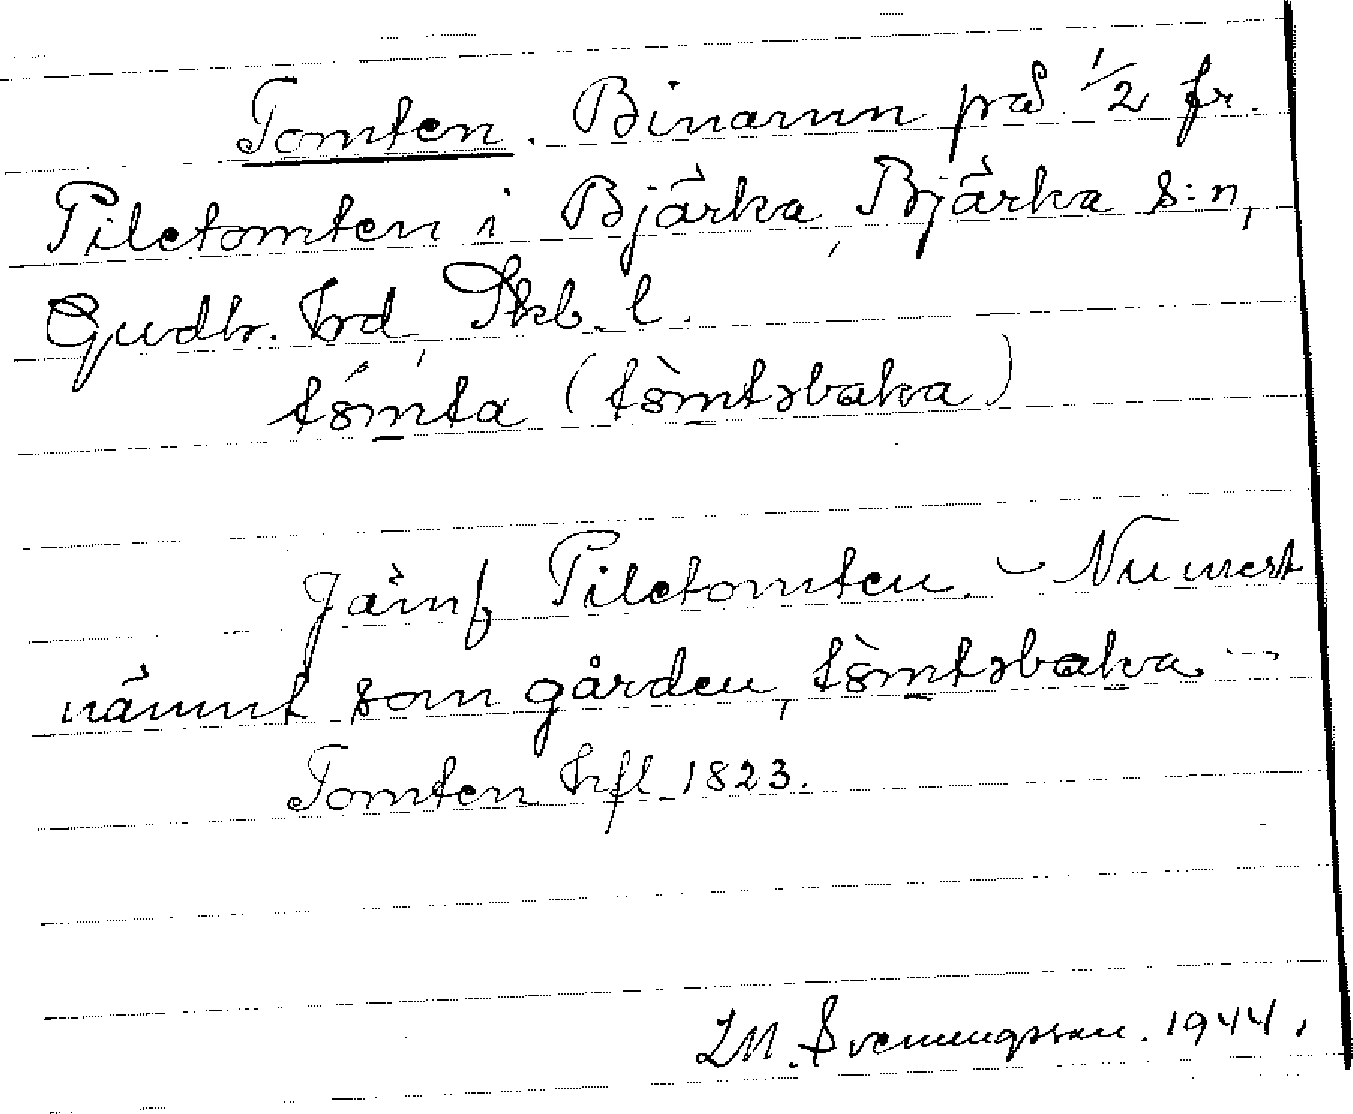 Tomten. Binamn på 1/2 fr.
Piletomten i Bjärka, Bjärka s:n,
Gudh. hrd, Skb. l.
tómta (tòmtəbaka)
Jämf Piletomten. – Nu mest
nämnt som gården, tòmtəbaka –
Tomten hfl 1823.
I.M. Svenungsson. 1944.